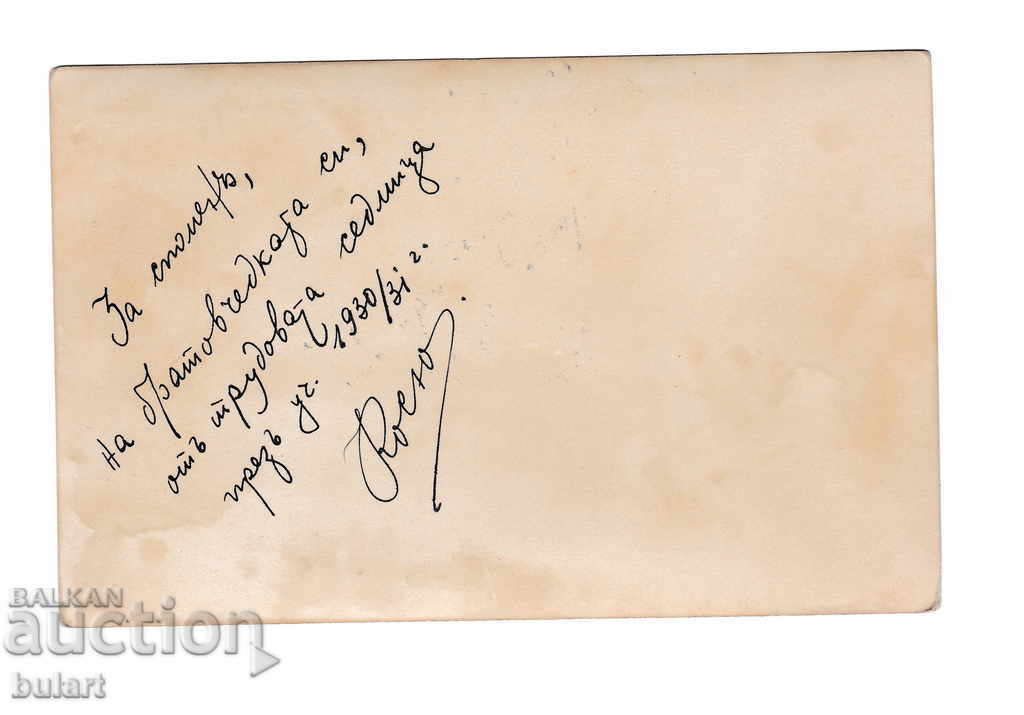 За споменъ,
на братовчедката си,
отъ трудовата седмица
презъ уч. 1930/31 г.
Косьо
BALKAN
auction
bulart